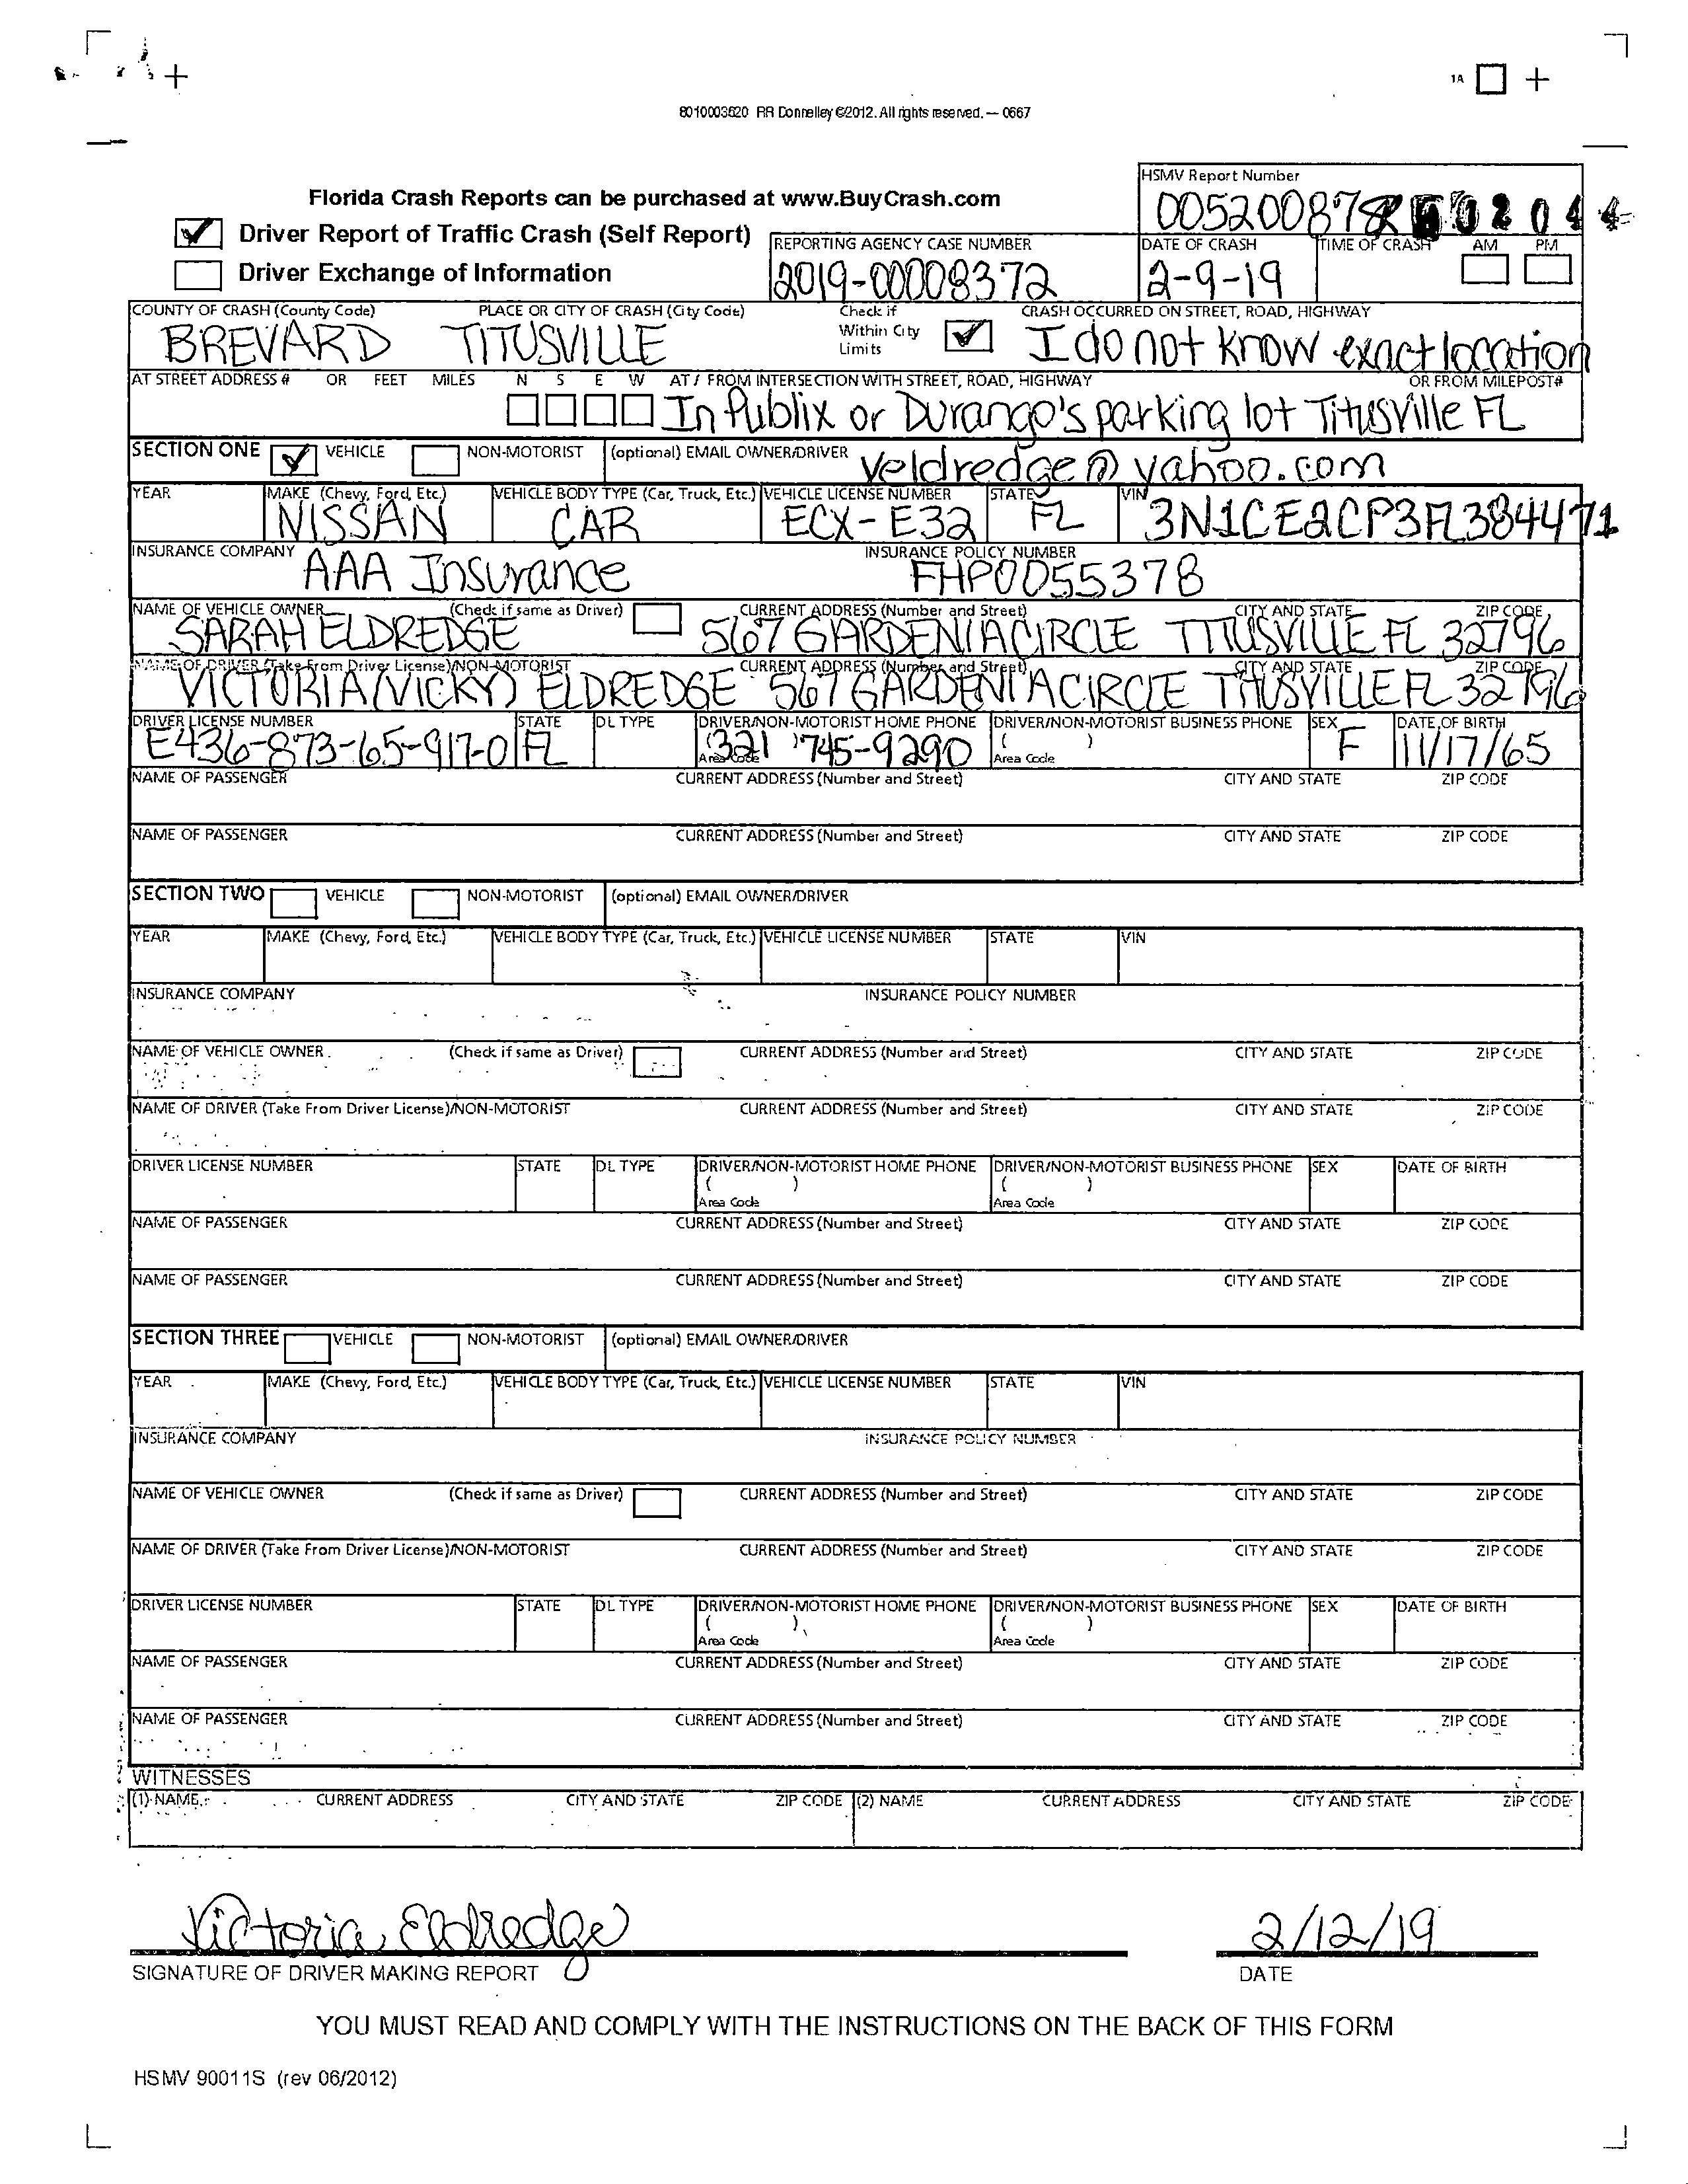 1A
8010003620 RR Donnelley ©2012. All rights reserved. — 0667
HSMV Report Number
Florida Crash Reports can be purchased at www.BuyCrash.com
Driver Report of Traffic Crash (Self Report)
REPORTING AGENCY CASE NUMBER DATE OF CRASH TIME OF CRASH AM PM
Driver Exchange of Information 2019-00008372 2-9-19
COUNTY OF CRASH (County Code) PLACE OR CITY OF CRASH (City Code) Check if Within City Limits CRASH OCCURRED ON STREET, ROAD, HIGHWAY
BREVARD TITUSVILLE I do not know exact location
AT STREET ADDRESS # OR FEET MILES N S E W AT / FROM INTERSECTION WITH STREET, ROAD, HIGHWAY OR FROM MILEPOST#
In Publix or Durango's parking lot Titusville FL
SECTION ONE VEHICLE NON-MOTORIST (optional) EMAIL OWNER/DRIVER Veldredge@yahoo.com
YEAR MAKE (Chevy, Ford, Etc.) VEHICLE BODY TYPE (Car, Truck, Etc.) VEHICLE LICENSE NUMBER STATE VIN
NISSAN CAR ECX-E32 FL 3N1CE2CP3FL384471
INSURANCE COMPANY INSURANCE POLICY NUMBER
AAA Insurance FHP0055378
NAME OF VEHICLE OWNER (Check if same as Driver) CURRENT ADDRESS (Number and Street) CITY AND STATE ZIP CODE
SARAH ELDREDGE 567 GARDENIA CIRCLE TITUSVILLE FL 32796
NAME OF DRIVER (Take From Driver License)/NON-MOTORIST CURRENT ADDRESS (Number and Street) CITY AND STATE ZIP CODE
VICTORIA (VICKY) ELDREDGE 567 GARDENIA CIRCLE TITUSVILLE FL 32796
DRIVER LICENSE NUMBER STATE DL TYPE DRIVER/NON-MOTORIST HOME PHONE DRIVER/NON-MOTORIST BUSINESS PHONE SEX DATE OF BIRTH
E436-873-65-917-0 FL (321) 745-9290 ( ) F 11/17/65
Area Code Area Code
NAME OF PASSENGER CURRENT ADDRESS (Number and Street) CITY AND STATE ZIP CODE
NAME OF PASSENGER CURRENT ADDRESS (Number and Street) CITY AND STATE ZIP CODE
SECTION TWO VEHICLE NON-MOTORIST (optional) EMAIL OWNER/DRIVER
YEAR MAKE (Chevy, Ford, Etc.) VEHICLE BODY TYPE (Car, Truck, Etc.) VEHICLE LICENSE NUMBER STATE VIN
INSURANCE COMPANY INSURANCE POLICY NUMBER
NAME OF VEHICLE OWNER (Check if same as Driver) CURRENT ADDRESS (Number and Street) CITY AND STATE ZIP CODE
NAME OF DRIVER (Take From Driver License)/NON-MOTORIST CURRENT ADDRESS (Number and Street) CITY AND STATE ZIP CODE
DRIVER LICENSE NUMBER STATE DL TYPE DRIVER/NON-MOTORIST HOME PHONE DRIVER/NON-MOTORIST BUSINESS PHONE SEX DATE OF BIRTH
( ) ( )
Area Code Area Code
NAME OF PASSENGER CURRENT ADDRESS (Number and Street) CITY AND STATE ZIP CODE
NAME OF PASSENGER CURRENT ADDRESS (Number and Street) CITY AND STATE ZIP CODE
SECTION THREE VEHICLE NON-MOTORIST (optional) EMAIL OWNER/DRIVER
YEAR MAKE (Chevy, Ford, Etc.) VEHICLE BODY TYPE (Car, Truck, Etc.) VEHICLE LICENSE NUMBER STATE VIN
INSURANCE COMPANY INSURANCE POLICY NUMBER
NAME OF VEHICLE OWNER (Check if same as Driver) CURRENT ADDRESS (Number and Street) CITY AND STATE ZIP CODE
NAME OF DRIVER (Take From Driver License)/NON-MOTORIST CURRENT ADDRESS (Number and Street) CITY AND STATE ZIP CODE
DRIVER LICENSE NUMBER STATE DL TYPE DRIVER/NON-MOTORIST HOME PHONE DRIVER/NON-MOTORIST BUSINESS PHONE SEX DATE OF BIRTH
( ) ( )
Area Code Area Code
NAME OF PASSENGER CURRENT ADDRESS (Number and Street) CITY AND STATE ZIP CODE
NAME OF PASSENGER CURRENT ADDRESS (Number and Street) CITY AND STATE ZIP CODE
WITNESSES
(1) NAME CURRENT ADDRESS CITY AND STATE ZIP CODE (2) NAME CURRENT ADDRESS CITY AND STATE ZIP CODE
Victoria Eldredge 2/12/19
SIGNATURE OF DRIVER MAKING REPORT DATE
YOU MUST READ AND COMPLY WITH THE INSTRUCTIONS ON THE BACK OF THIS FORM
HSMV 90011S (rev 06/2012)